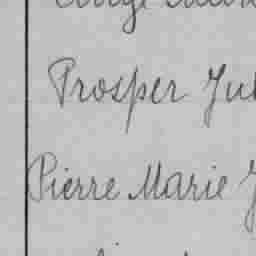 Prosper Jul
Pierre Marie J